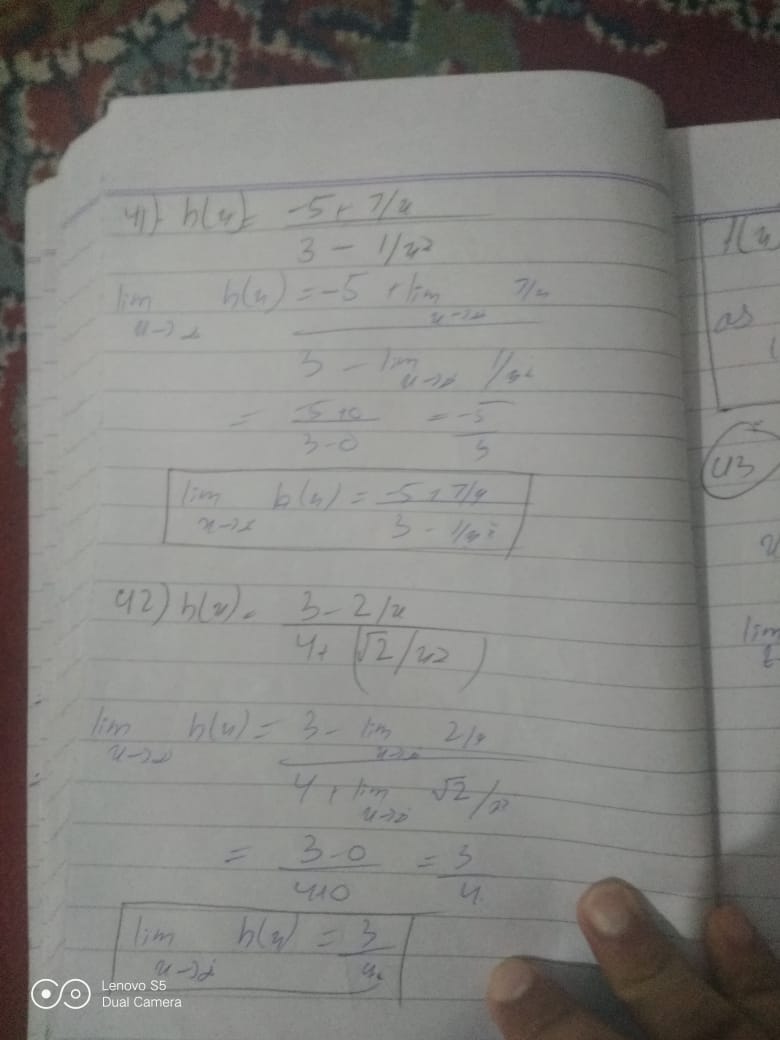 41) h(x) = -5 + 7/x
3 - 1/x²
lim h(x) = -5 + lim 7/x
x→∞ x→∞
3 - lim 1/x²
x→∞
= -5+0 = -5
3-0 3
lim h(x) = -5 + 7/x
x→∞ 3 - 1/x²
42) h(x) = 3 - 2/x
4 + (√2/x2)
lim h(x) = 3 - lim 2/x
x→∞ x→∞
4 + lim √2/x²
x→∞
= 3-0 = 3
4+0 4
lim h(x) = 3
x→∞ 4
f(x)
as
43
lim
Lenovo S5
Dual Camera